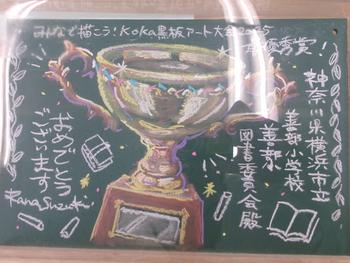 みんなで描こう!KOKA黒板アート大会2025
最優秀賞
神奈川県横浜市立
善部小学校
善部小
図書委員会殿
おめでとう
ございます
Rana Suzuki